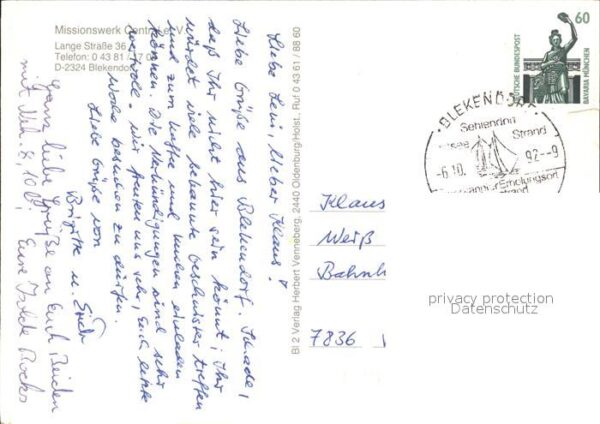 Missionswerk Central e. V.
Lange Straße 36
Telefon: 0 43 81 /
D-2324 Blekendorf
Liebe Leni, lieber Klaus!
Liebe Grüße aus Blekendorf. Schade,
daß Ihr nicht hier sein könnt; Ihr
würdet viele bekannte Geschwister treffen
und zum Kaffee und einladen
können. Die Verkündigungen sind sehr
wertvoll. Wir freuen uns sehr, Euch letzte
Woche besuchen zu dürfen.
Liebe Grüße von
Brigitte u. Erich
Ganz liebe Grüße an Euch Beiden
mit 10 6! Eure Rocks
Bl 2 Verlag Herbert Venneberg, 2440 Oldenburg/Holst., Ruf 0 43 61 / 88 60
60
DEUTSCHE BUNDESPOST
BAVARIA MÜNCHEN
BLEKENDORF
Sehlendorf
Ostsee Strand
-6.10. 92-9
Erholungsort
Strand
Klaus
Weiß
Bahnh
7836
privacy protection
Datenschutz